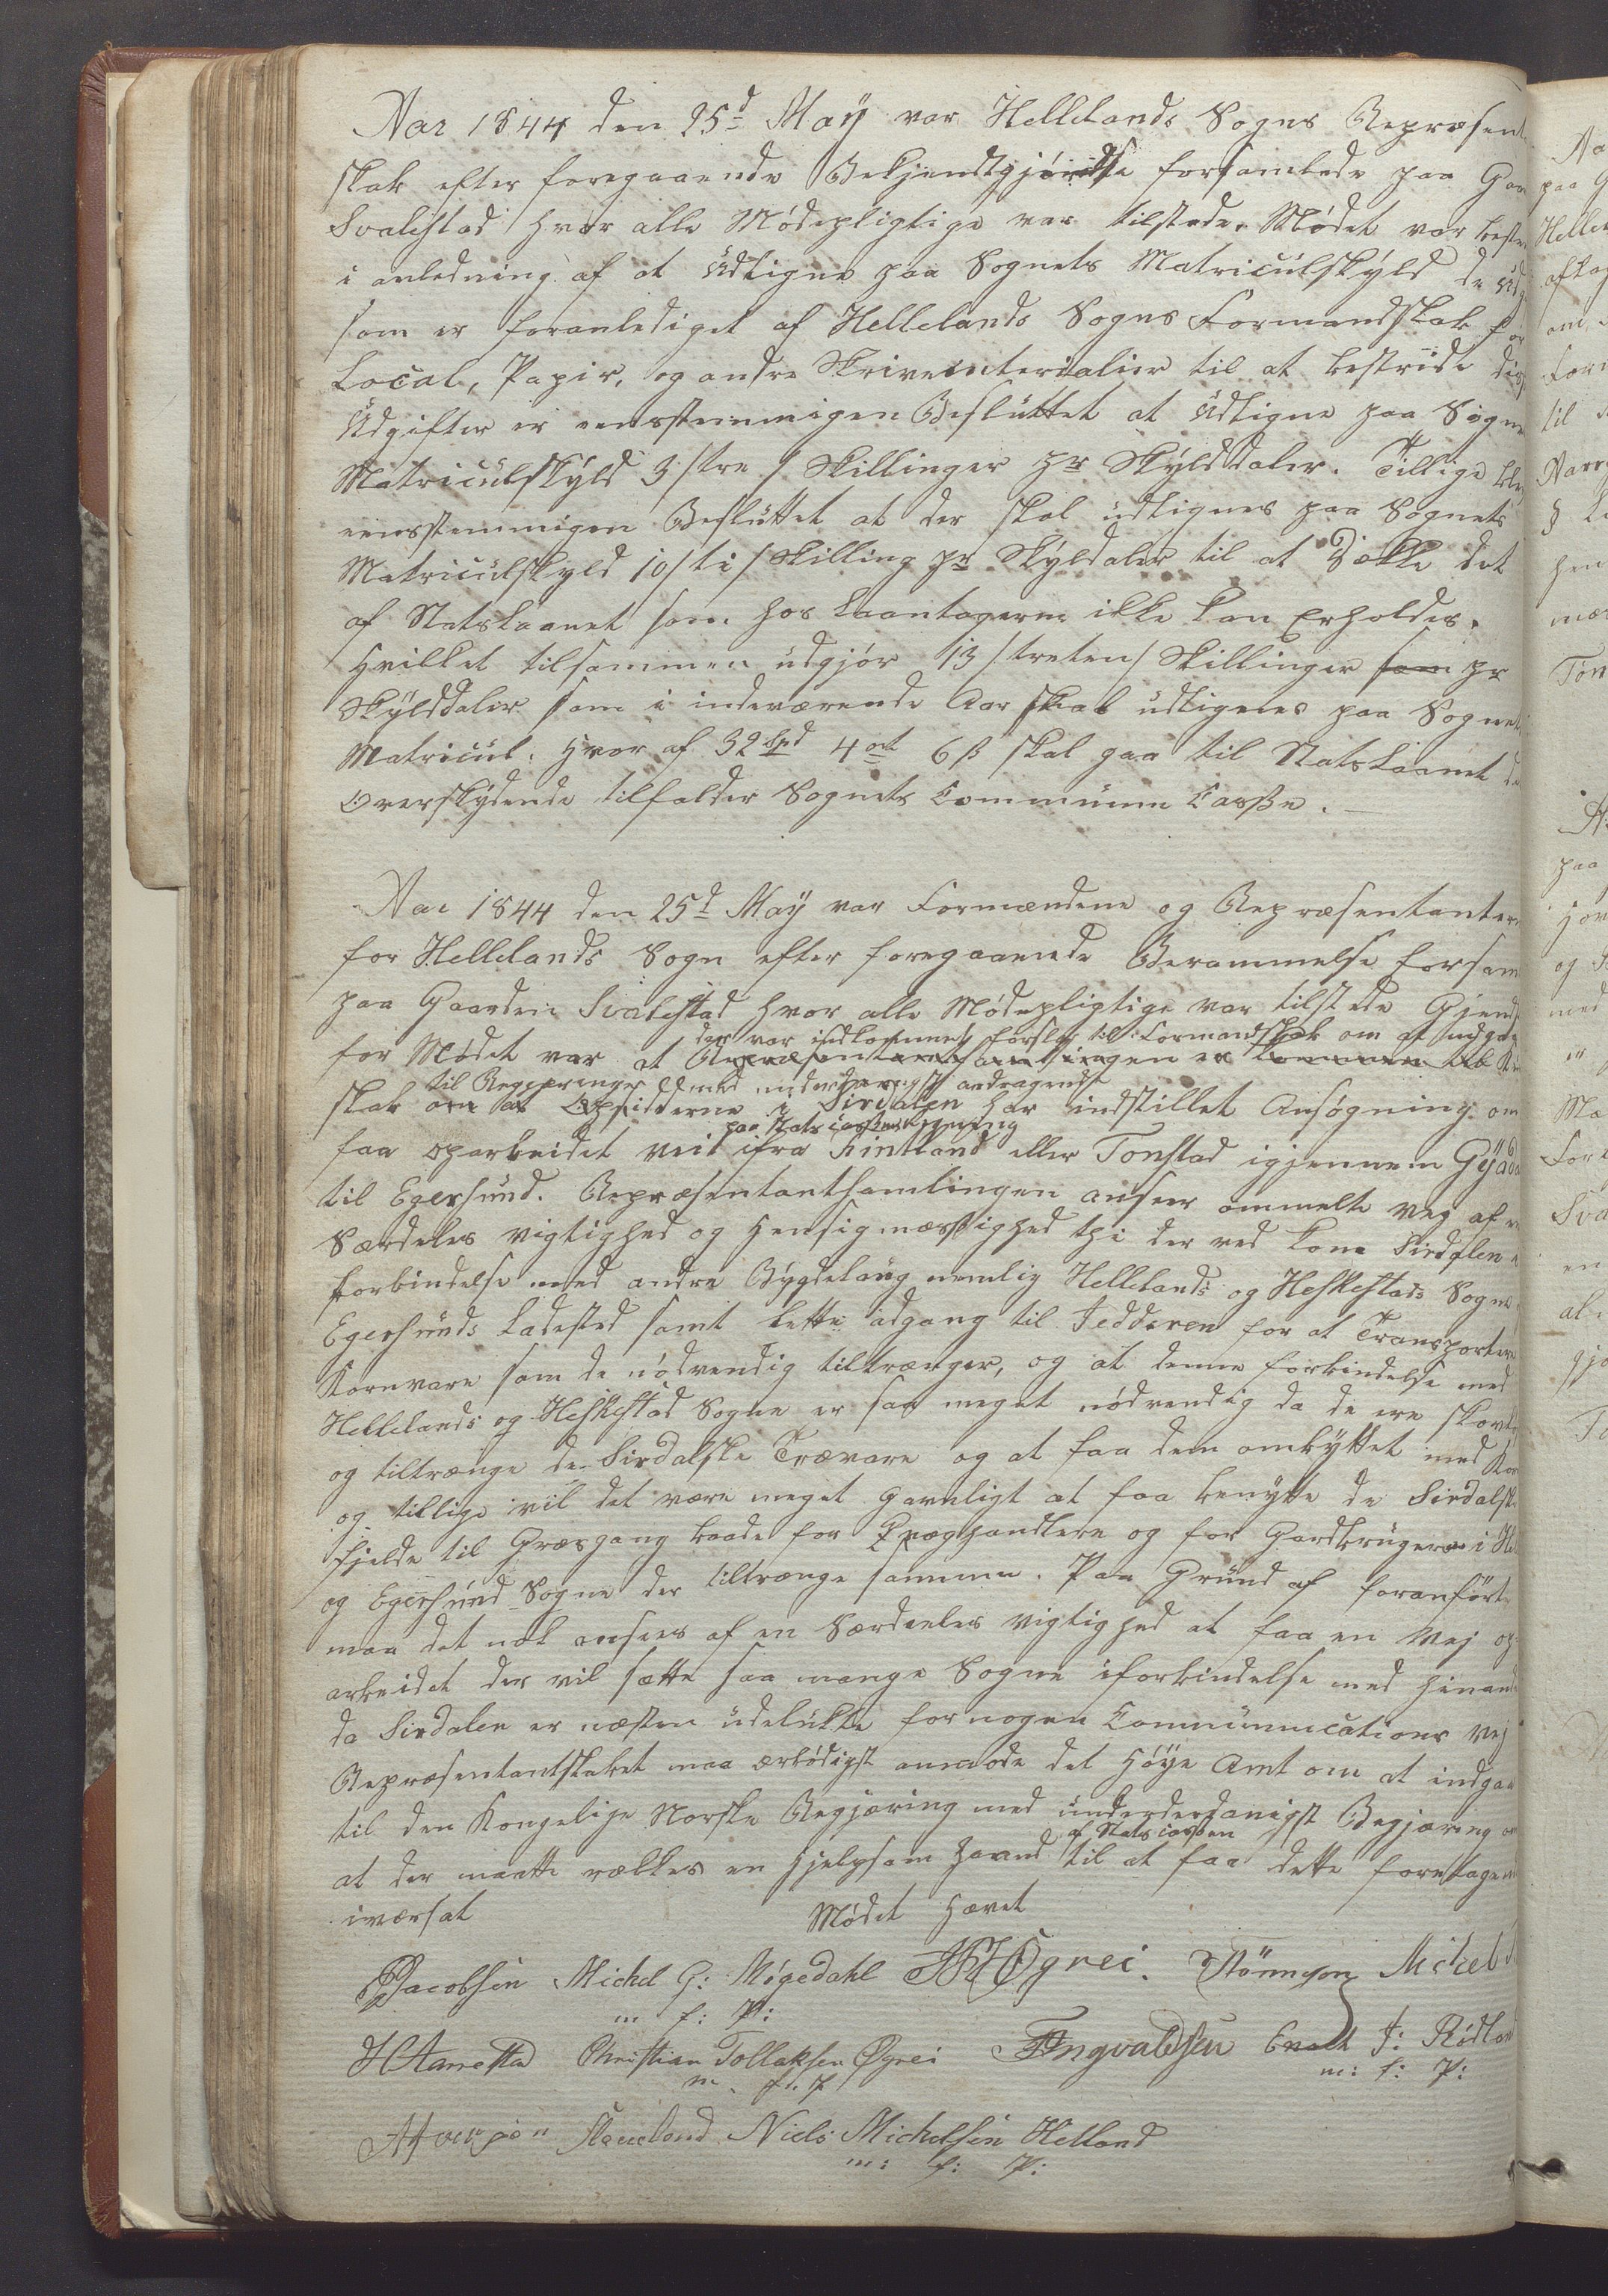 Aar 1844 den 25d May var Hellelands Sogns Repræsent
skab efter foregaaende Bekjendtgjørelse forsamlede paa Gaa
Svalestad hvor alle Mødepligtige var tilstede. Mødet var beste
i anledning af at Udligne paa Sognets Matriculskyld de Ud
som er foranlediget af Hellelands Sogns Formandskab for
Local, Papir, og andre Skrivematerialier til at bestride dis
Udgifter er eensstemmigen Besluttet at Udligne paa Sogne
Matriculskyld 3 /tre/ Skillinger pr Skylddaler. Tillige ble
eensstemmigen Besluttet at der skal udlignes paa Sognets
Matriculskyld 10 /ti/ Skilling pr Skyldaler til at Dække det
af Statslaanet som hos Laantagerne ikke kan Erholdes.
Hvilket tilsammen udgjør 13 /treten/ Skillinger som pr
Skylddaler som i indeværende Aar skal udlignes paa Sognet
Matricul. Hvor af 32 Spd 4 ort 6 ß skal gaa til Statslaanet de
Overskydende tilfalder Sognets Commune Casse.
Aar 1844 den 25d May var Formændene og Repræsentanter
for Hellelands Sogn efter foregaaende Berammelse forsam
paa Gaarden Svalestad hvor alle Mødepligtige var tilstede Gjens
der var indkommet forslag til Formandskab om at indgaa
for Mødet var at Repræsentantsamlingen er kommen
til Regjeringen med underdanigst andragende
skab om at Opsidderne i Sirdalen har indstillet Ansøgning om
paa Statscassens Regning
faa oparbeidet vei ifra Kintland eller Tonstad igjennem Gyada
til Egersund. Repræsentantsamlingen anseer ommelte veg af
Særdeles vigtighed og Hensigmæssighed thi der ved kom Sirdalen
forbindelse med andre Bygdelaug nemlig Hellelands og Heskestads Sogne
Egersunds Ladested samt lette adgang til Jedderen for at Transportere
Kornvare som de nødvendig tiltrænger, og at denne forbindelse med
Hellelands og Heskestad Sogne er saa meget nødvendig da de ere skovl
og tiltrænge de Sirdalske Trævare og at faa dem ombyttet med Kor
og tillige vil det være meget gavnligt at faa benytte de Sirdalske
fjelde til Græsgang baade for Qvæghandlere og for Gardbrugere i He
og Egersund Sogne der tiltrænge samme. Paa Grund af foranførte
maa det nok ansees af en Særdeeles vigtighed at faa en Vej op¬
arbeidet der vil sætte saa mange Sogne iforbindelse med hinand
da Sirdalen er næsten udelukte for nogen Communications Vej
Repræsentantskabet maa ærbødigst anmode det Høye Amt om at indgaa
til den Kongelige Norske Regjæring med underdanigst Begjæring om
af Statscassen
at der maatte rækkes en hjelpsom haand til at faa dette foretagen
iværsat
Mødet Hævet
Jacobsen Michel G: Møgedahl Øgrei. Tönnesen Michel
m f: P:
HAarrestad Christian Tollaksen Øgrei Ingvaldsen Enok J: Ridland
m. f. P m: f: P:
Aaversøn Slaueland Niels Michelsen Helland
m: f: P: